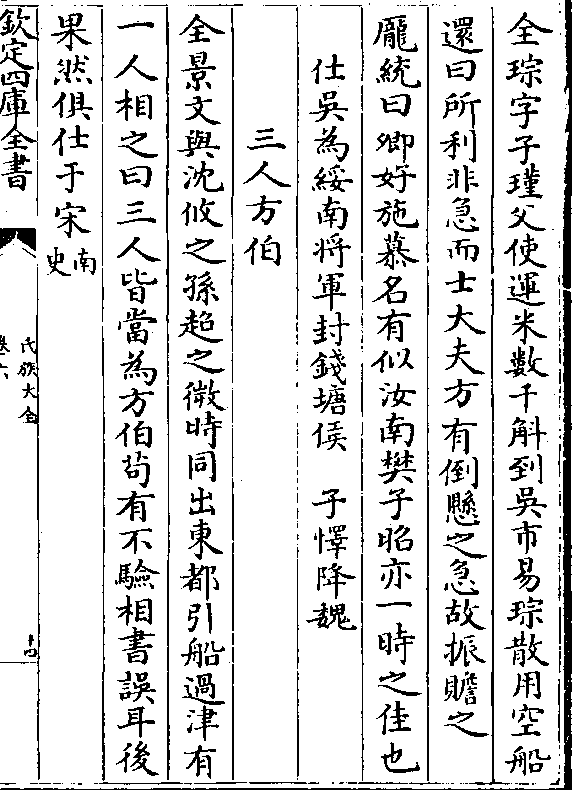 全琮字子璜父使運米數千斛到吳市易琮散用空船
還曰所利非急而士大夫方有倒懸之急故振贍之
龐統曰卿好施慕名有似汝南樊子昭亦一時之佳也
仕吳為綏南将軍封錢塘侯　子懌降魏
三人方伯
全景文與沈攸之孫超之微時同出東都引船過津有
一人相之曰三人皆當為方伯茍有不驗相書誤耳後
果然俱仕于宋南史
欽定四庫全書
氏族大全
卷六
十四